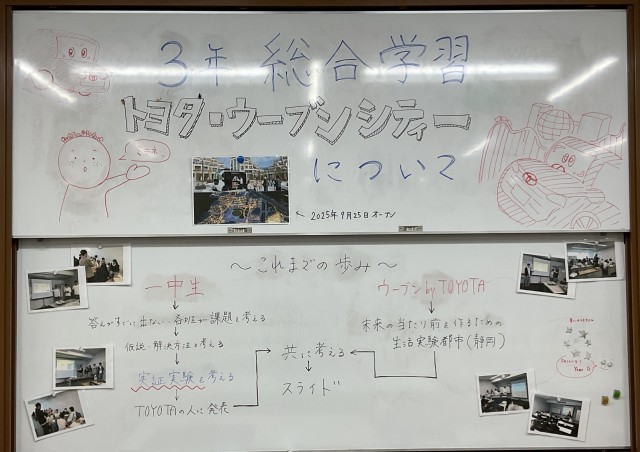 3年 総合学習
トヨタ・ウーブンシティー
について
2025年9月25日オープン
〜これまでの歩み〜
一中生
ウーブン by TOYOTA
答えがすぐに出ない 各班が課題を考える
未来の当たり前を作るための
生活実験都市(静岡)
仮説・解決方法を考える
共に考える
実証実験を考える
スライド
TOYOTAの人に発表